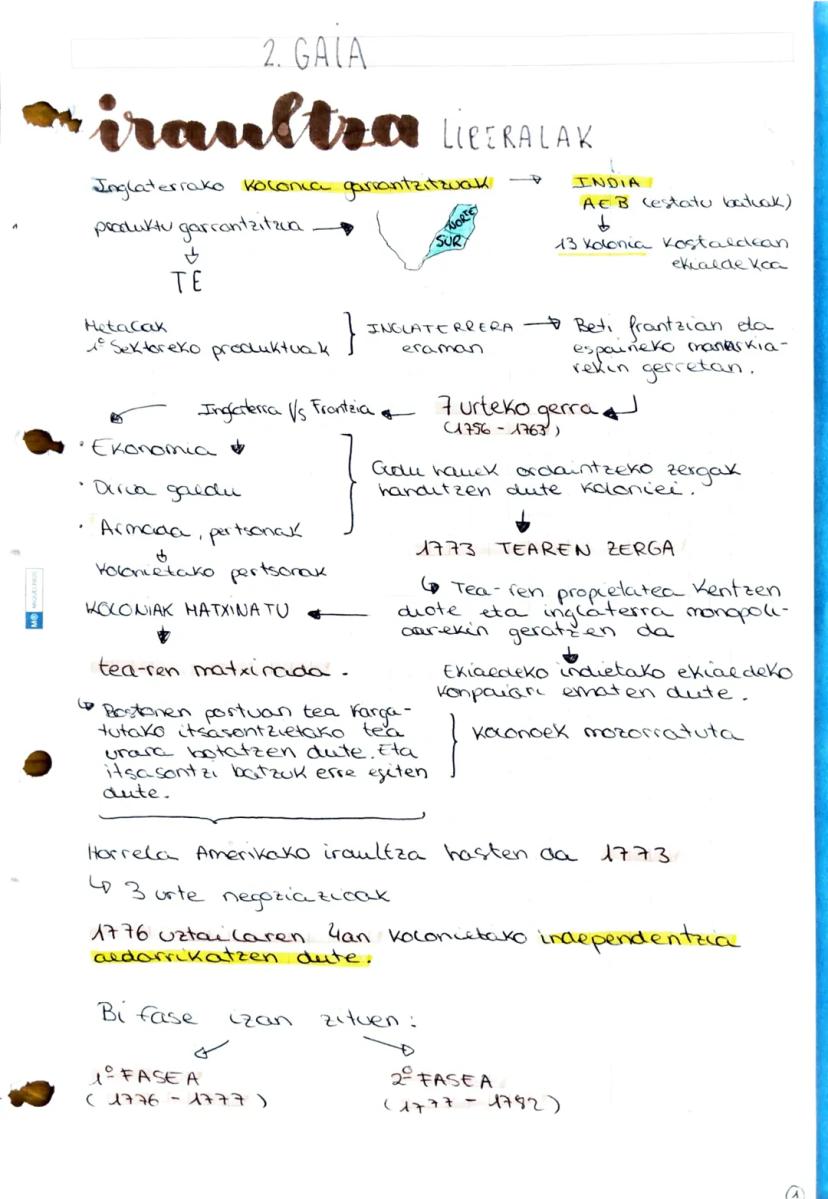 2. GAIA
iraultza LIBERALAK
Inglaterrako kolonia garrantzitzuak → INDIA
AEB (estatu batuak)
produktu garrantzitzua →
NORTE
SUR
↓
13 kolonia kostaldean
ekialdekoa
↓
TE
Metalak
1º Sektoreko produktuak
INGLATERRERA →
eraman
Beti frantzian eta
espaineko monarkia-
rekin gerretan.
7 urteko gerra
(1756 - 1763)
Inglaterra Vs Frantzia
· Ekonomia ↓
· Dirua galdu
· Armada, pertsonak
↓
Kolonietako pertsonak
Gudu hauek ordaintzeko zergak
handitzen dute koloniei.
↓
1773 TEAREN ZERGA
↳ Tea-ren propietatea kentzen
diote eta inglaterra monopoli-
oarekin geratzen da
↓
Ekialdeko indietako ekialdeko
konpainiari ematen dute.
KOLONIAK MATXINATU ←
↓
tea-ren matxinada.
↳ Bostonen portuan tea karga-
tutako itsasontzietako tea
urara botatzen dute. Eta
itsasontzi batzuk erre egiten
dute.
kolonoek mozorratuta
Horrela Amerikako iraultza hasten da 1773
↳ 3 urte negoziazioak
1776 uztailaren 4an kolonietako independentzia
aldarrikatzen dute.
Bi fase izan zituen:
1º FASEA
(1776 - 1777)
2º FASEA
(1777 - 1782)
MIQUELRIUS
1